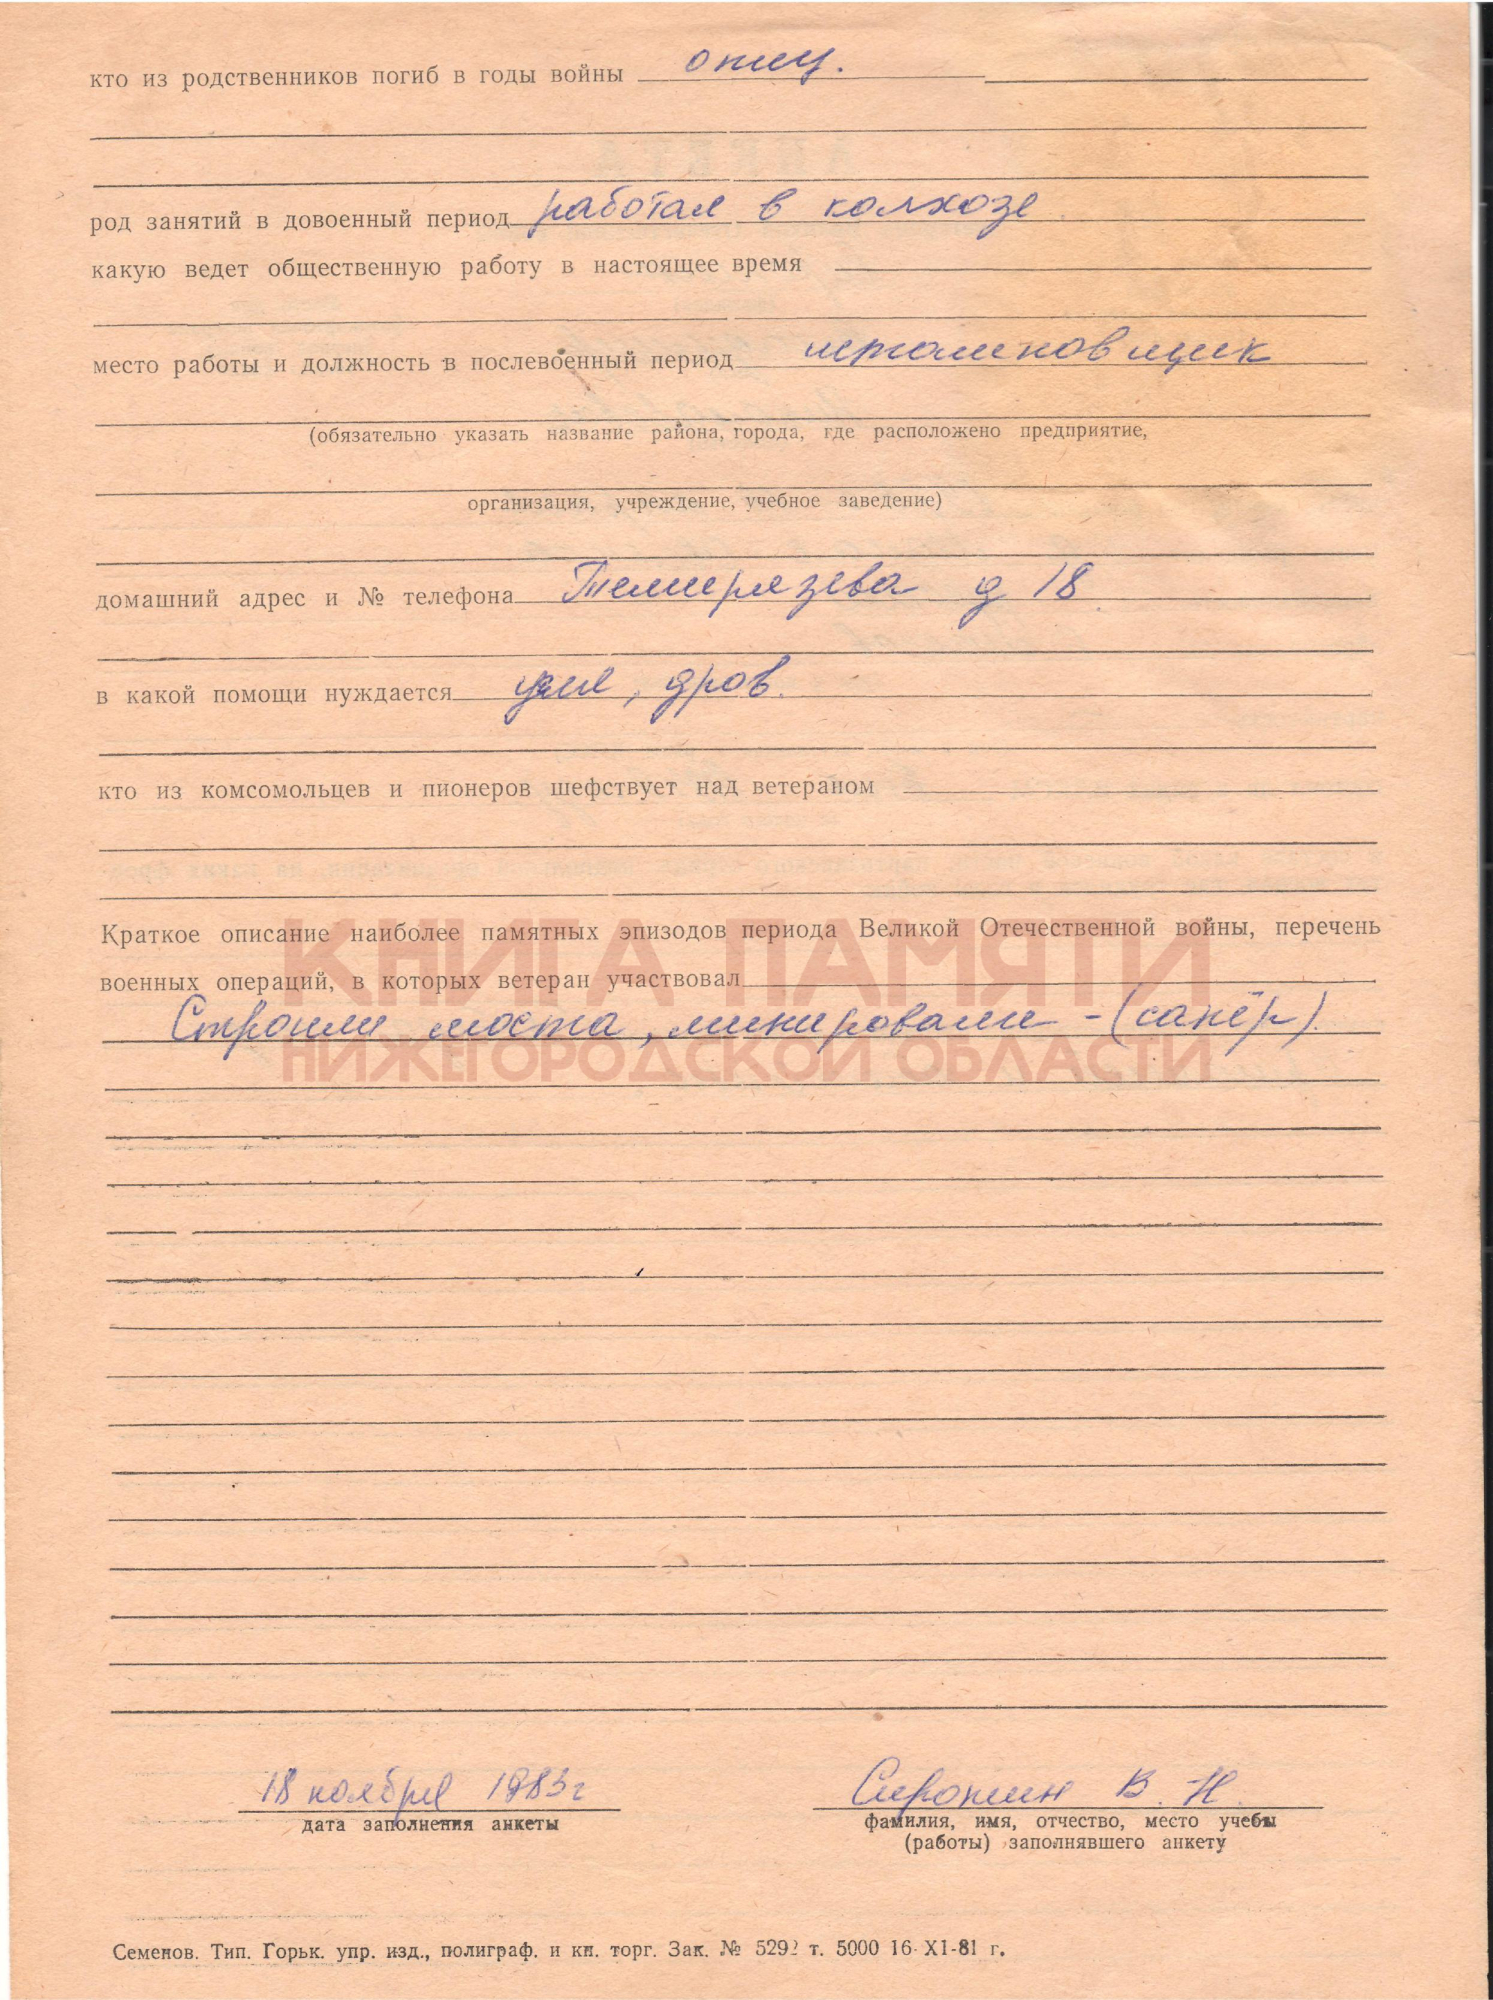 кто из родственников погиб в годы войны отец.
род занятий в довоенный период работал в колхозе
какую ведет общественную работу в настоящее время
место работы и должность в послевоенный период
(обязательно указать название района, города, где расположено предприятие,
организация, учреждение, учебное заведение)
домашний адрес и № телефона Темирязева д 18
в какой помощи нуждается дров.
кто из комсомольцев и пионеров шефствует над ветераном
Краткое описание наиболее памятных эпизодов периода Великой Отечественной войны, перечень
военных операций, в которых ветеран участвовал
КНИГА ПАМЯТИ
Строили моста, минировали - (сапёр).
НИЖЕГОРОДСКОЙ ОБЛАСТИ
18 ноября 1983г
Сироткин В. Н.
дата заполнения анкеты
фамилия, имя, отчество, место учебы
(работы) заполнявшего анкету
Семенов. Тип. Горьк. упр. изд., полиграф. и кн. торг. Зак. № 5292 т. 5000 16-XI-81 г.